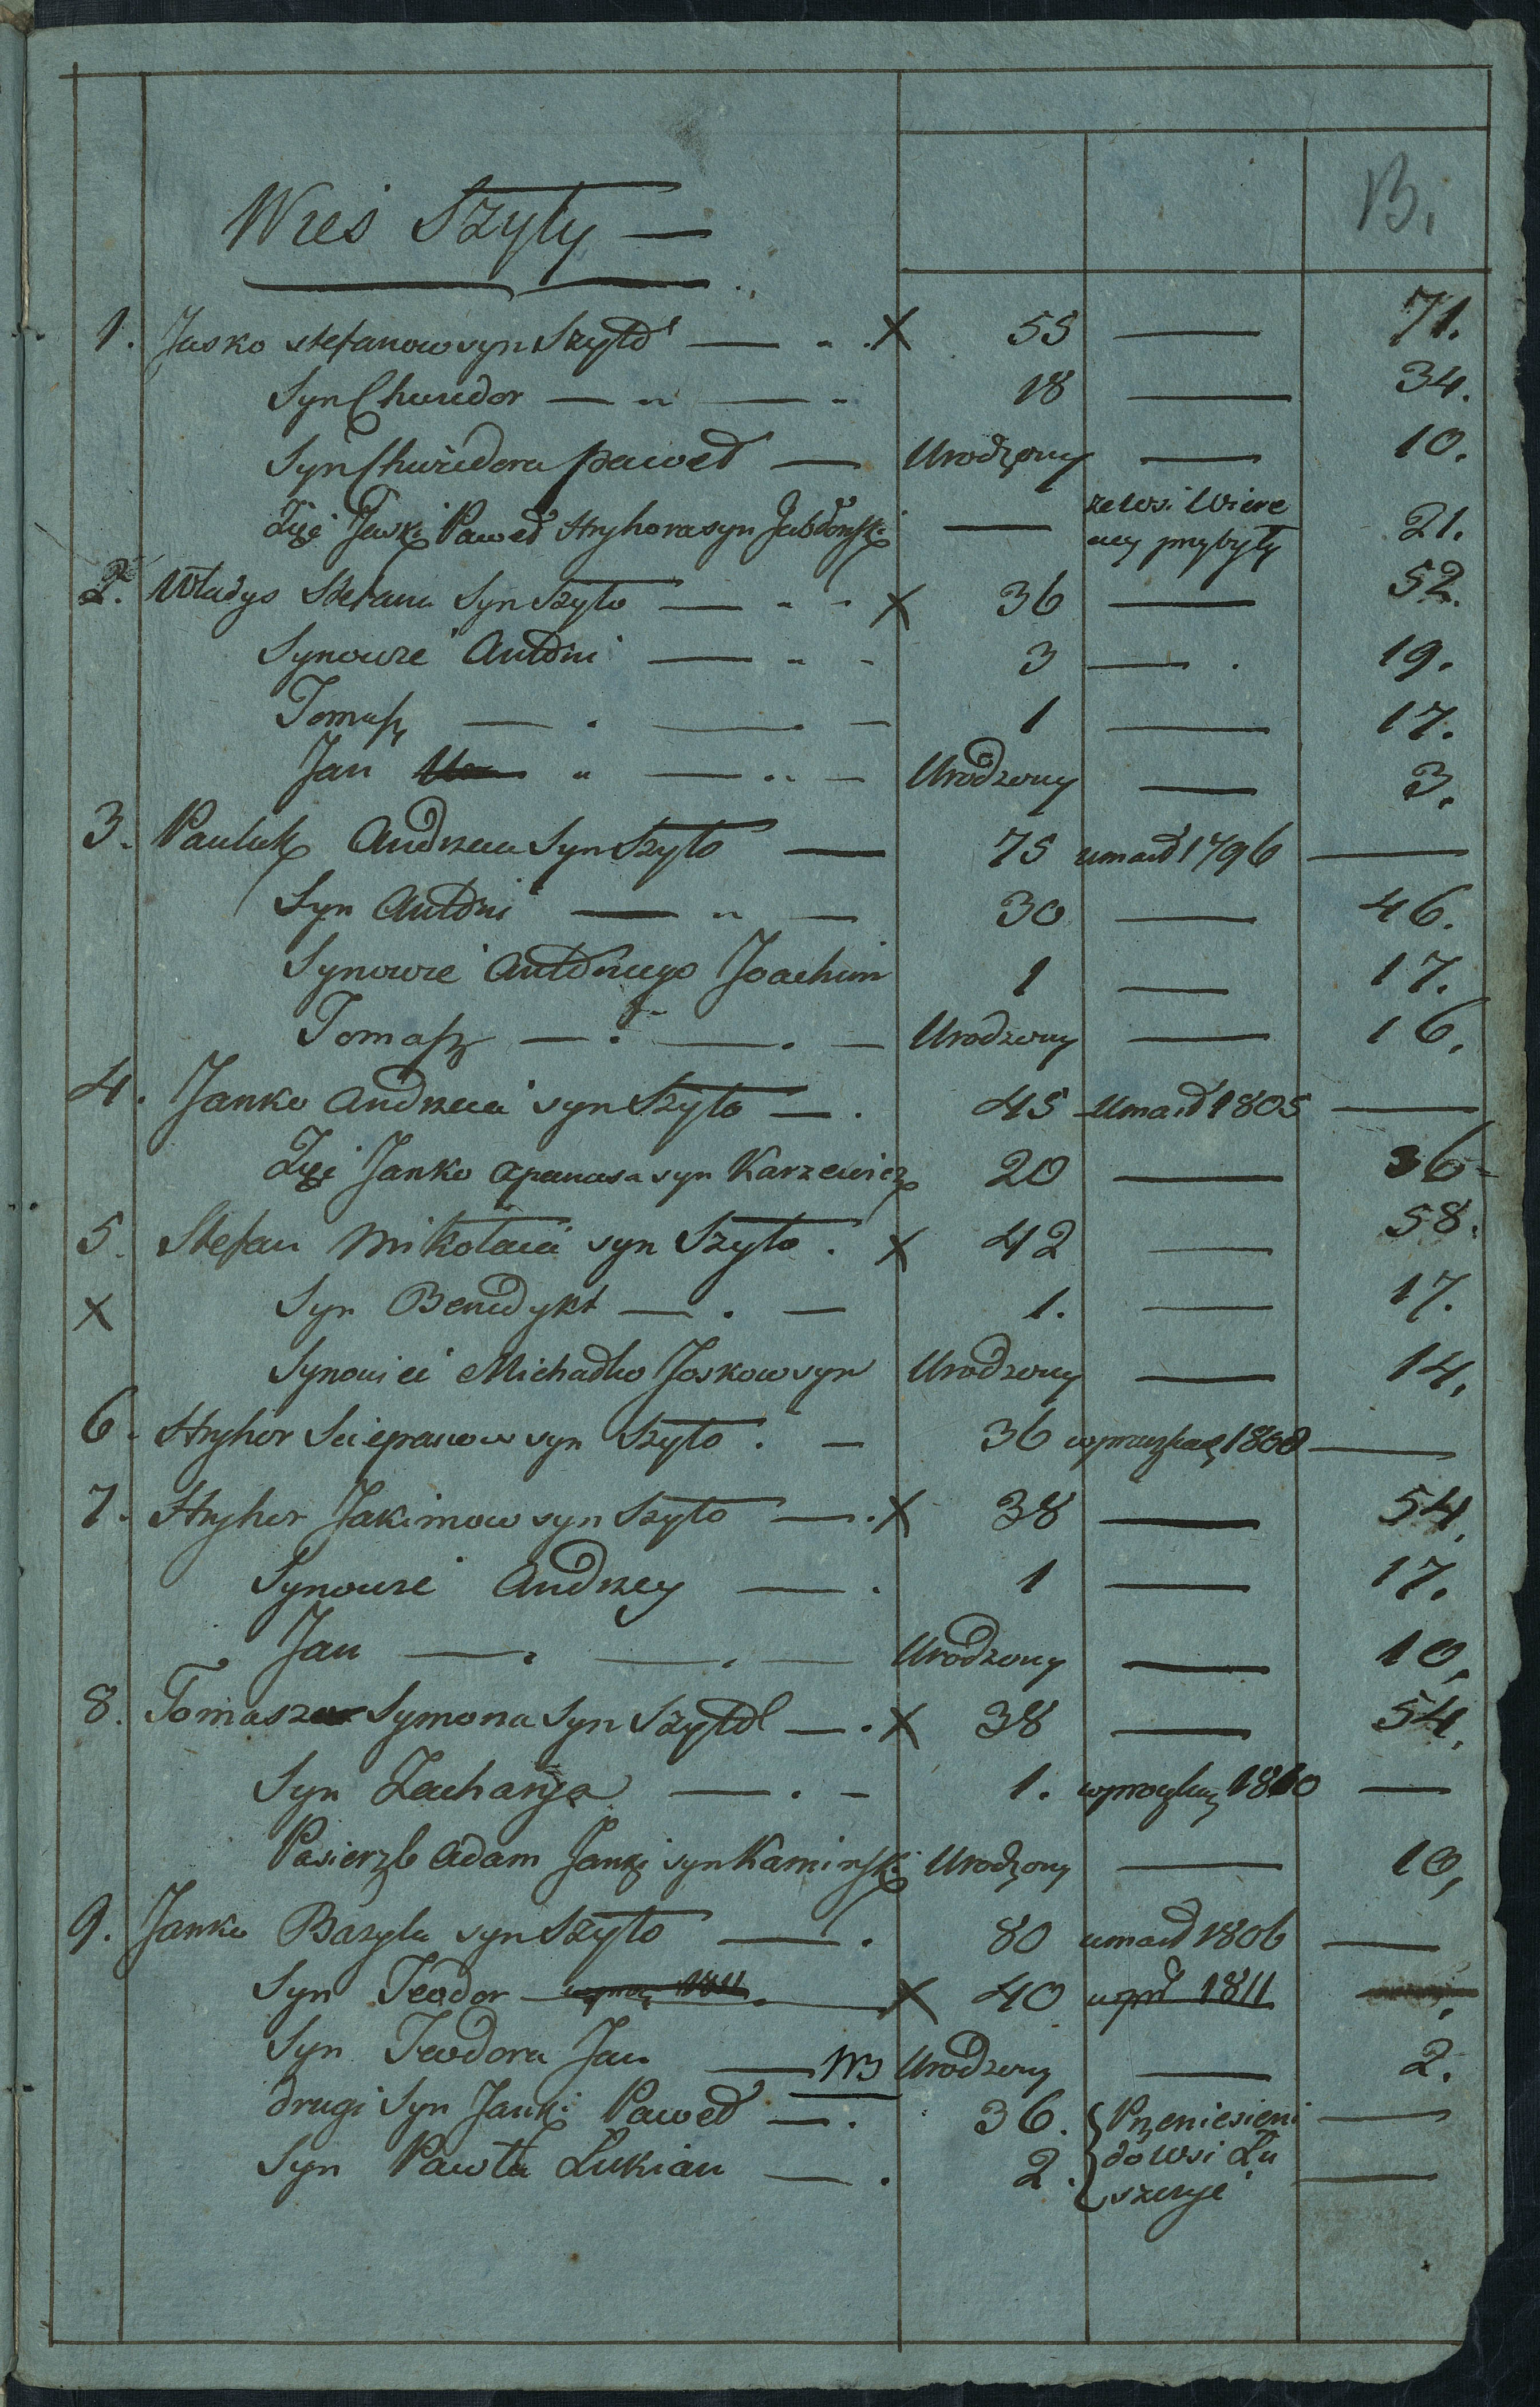 B.
Wieś Szyły —
1. Jasko Stefanow syn Szyło — X 55 — 71.
Syn Chwiedor — 18 — 34.
Syn Chwiedora Paweł — Urodzony — 10.
Zięć Jaski Paweł Hryhora syn Jabłoński — ze wsi Wiere
ucy przybyły 21.
2. Władys Stefana Syn Szyło — X 36 — 52.
Synowie Antoni — 3 — 19.
Tomasz — 1 — 17.
Jan — Urodzony — 3.
3. Pauluk Andrzeia Syn Szyło — 75 umarł 1796 —
Syn Antoni — 30 — 46.
Synowie Antoniego Joachim 1 — 17.
Tomasz — Urodzony — 16.
4. Janko Andrzeia syn Szyło — 45 Umarł 1805 —
Zięć Janko Apanasa syn Karzewicz 20 — 36
5. Stefan Mikołaia syn Szyło . X 42 — 58.
X Syn Benedykt — 1. — 17.
Synowiec Michałko Joskow syn Urodzony — 14.
6. Hryhor Sciepanow syn Szyło . — 36 1808 —
7. Hryhor Jakimow syn Szyło — X 38 — 54.
Synowie Andrzey — 1 — 17.
Jan — Urodzony — 10.
8. Tomasz Symona Syn Szyło — X 38 — 54.
Syn Zacharya — 1. 1810 —
Pasierzb Adam Janki syn Kaminski Urodzony — 10,
9. Janko Bazyla syn Szyło — 80 umarł 1806 —
Syn Teodor 1811 — X 40 1811
Syn Teodora Jan — Urodzony — 2.
drugi Syn Janki Paweł — 36. { Przeniesieni —
Syn Pawła Łukian — 2. do wsi Łu —
szczyc